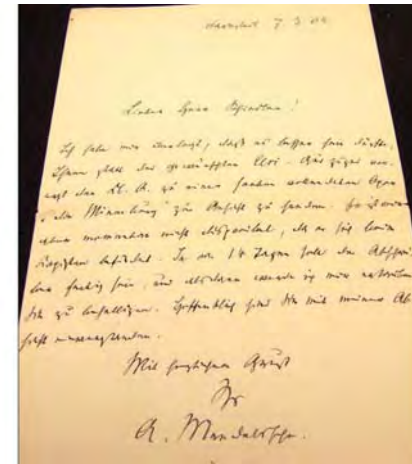 Darmstadt 7 3 02
Lieber Herr
Ich habe mir überlegt, daß es besser sein dürfte,
Ihnen statt der gewünschten
zu einer soeben vollendeten Oper
"die Minneburg" zur Ansicht zu senden.
aber momentan nicht disponibel, da er sich beim
Kopisten befindet. In ca 14 Tagen soll die Abschrift
fertig sein, und alsdann werde ich mir erlauben
Sie zu behelligen. Hoffentlich sind Sie mit meiner Ab-
sicht einverstanden.
Mit herzlichem Gruß
Ihr
A. Mendelssohn.